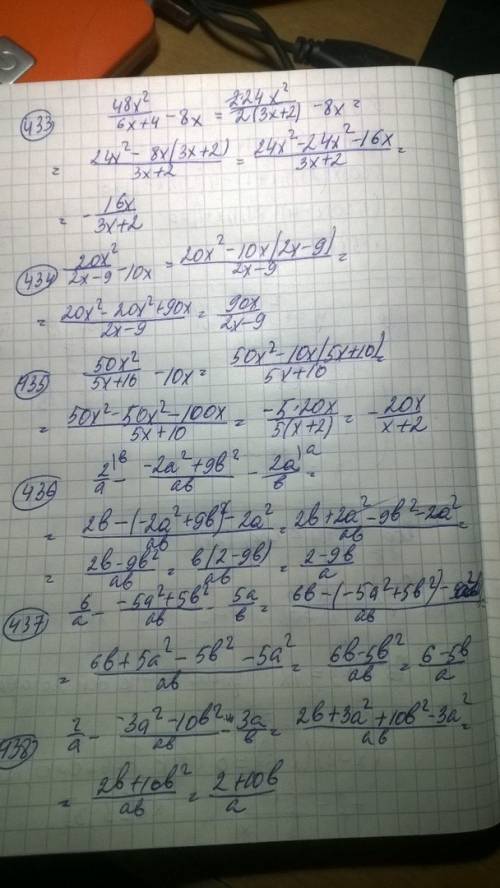 433 48x²/(6x+4) - 8x = 2·24x²/2(3x+2) - 8x =
= (24x² - 8x(3x+2))/(3x+2) = (24x² - 24x² - 16x)/(3x+2) =
= - 16x/(3x+2)
434 20x²/(2x-9) - 10x = (20x² - 10x(2x-9))/(2x-9) =
= (20x² - 20x² + 90x)/(2x-9) = 90x/(2x-9)
435 50x²/(5x+10) - 10x = (50x² - 10x(5x+10))/(5x+10) =
= (50x² - 50x² - 100x)/(5x+10) = -5·20x/5(x+2) = - 20x/(x+2)
436 2/a |b - (-2a²+9b²)/ab - 2a/b |a =
= (2b - (-2a²+9b²) - 2a²)/ab = (2b + 2a² - 9b² - 2a²)/ab =
= (2b - 9b²)/ab = b(2-9b)/ab = (2-9b)/a
437 6/a - (-5a²+5b²)/ab - 5a/b = (6b - (-5a²+5b²) -)/ab
= (6b + 5a² - 5b² - 5a²)/ab = (6b - 5b²)/ab = (6-5b)/a
438 2/a - (-3a²-10b²)/ab - 3a/b = (2b + 3a² + 10b² - 3a²)/ab =
= (2b + 10b²)/ab = (2+10b)/a